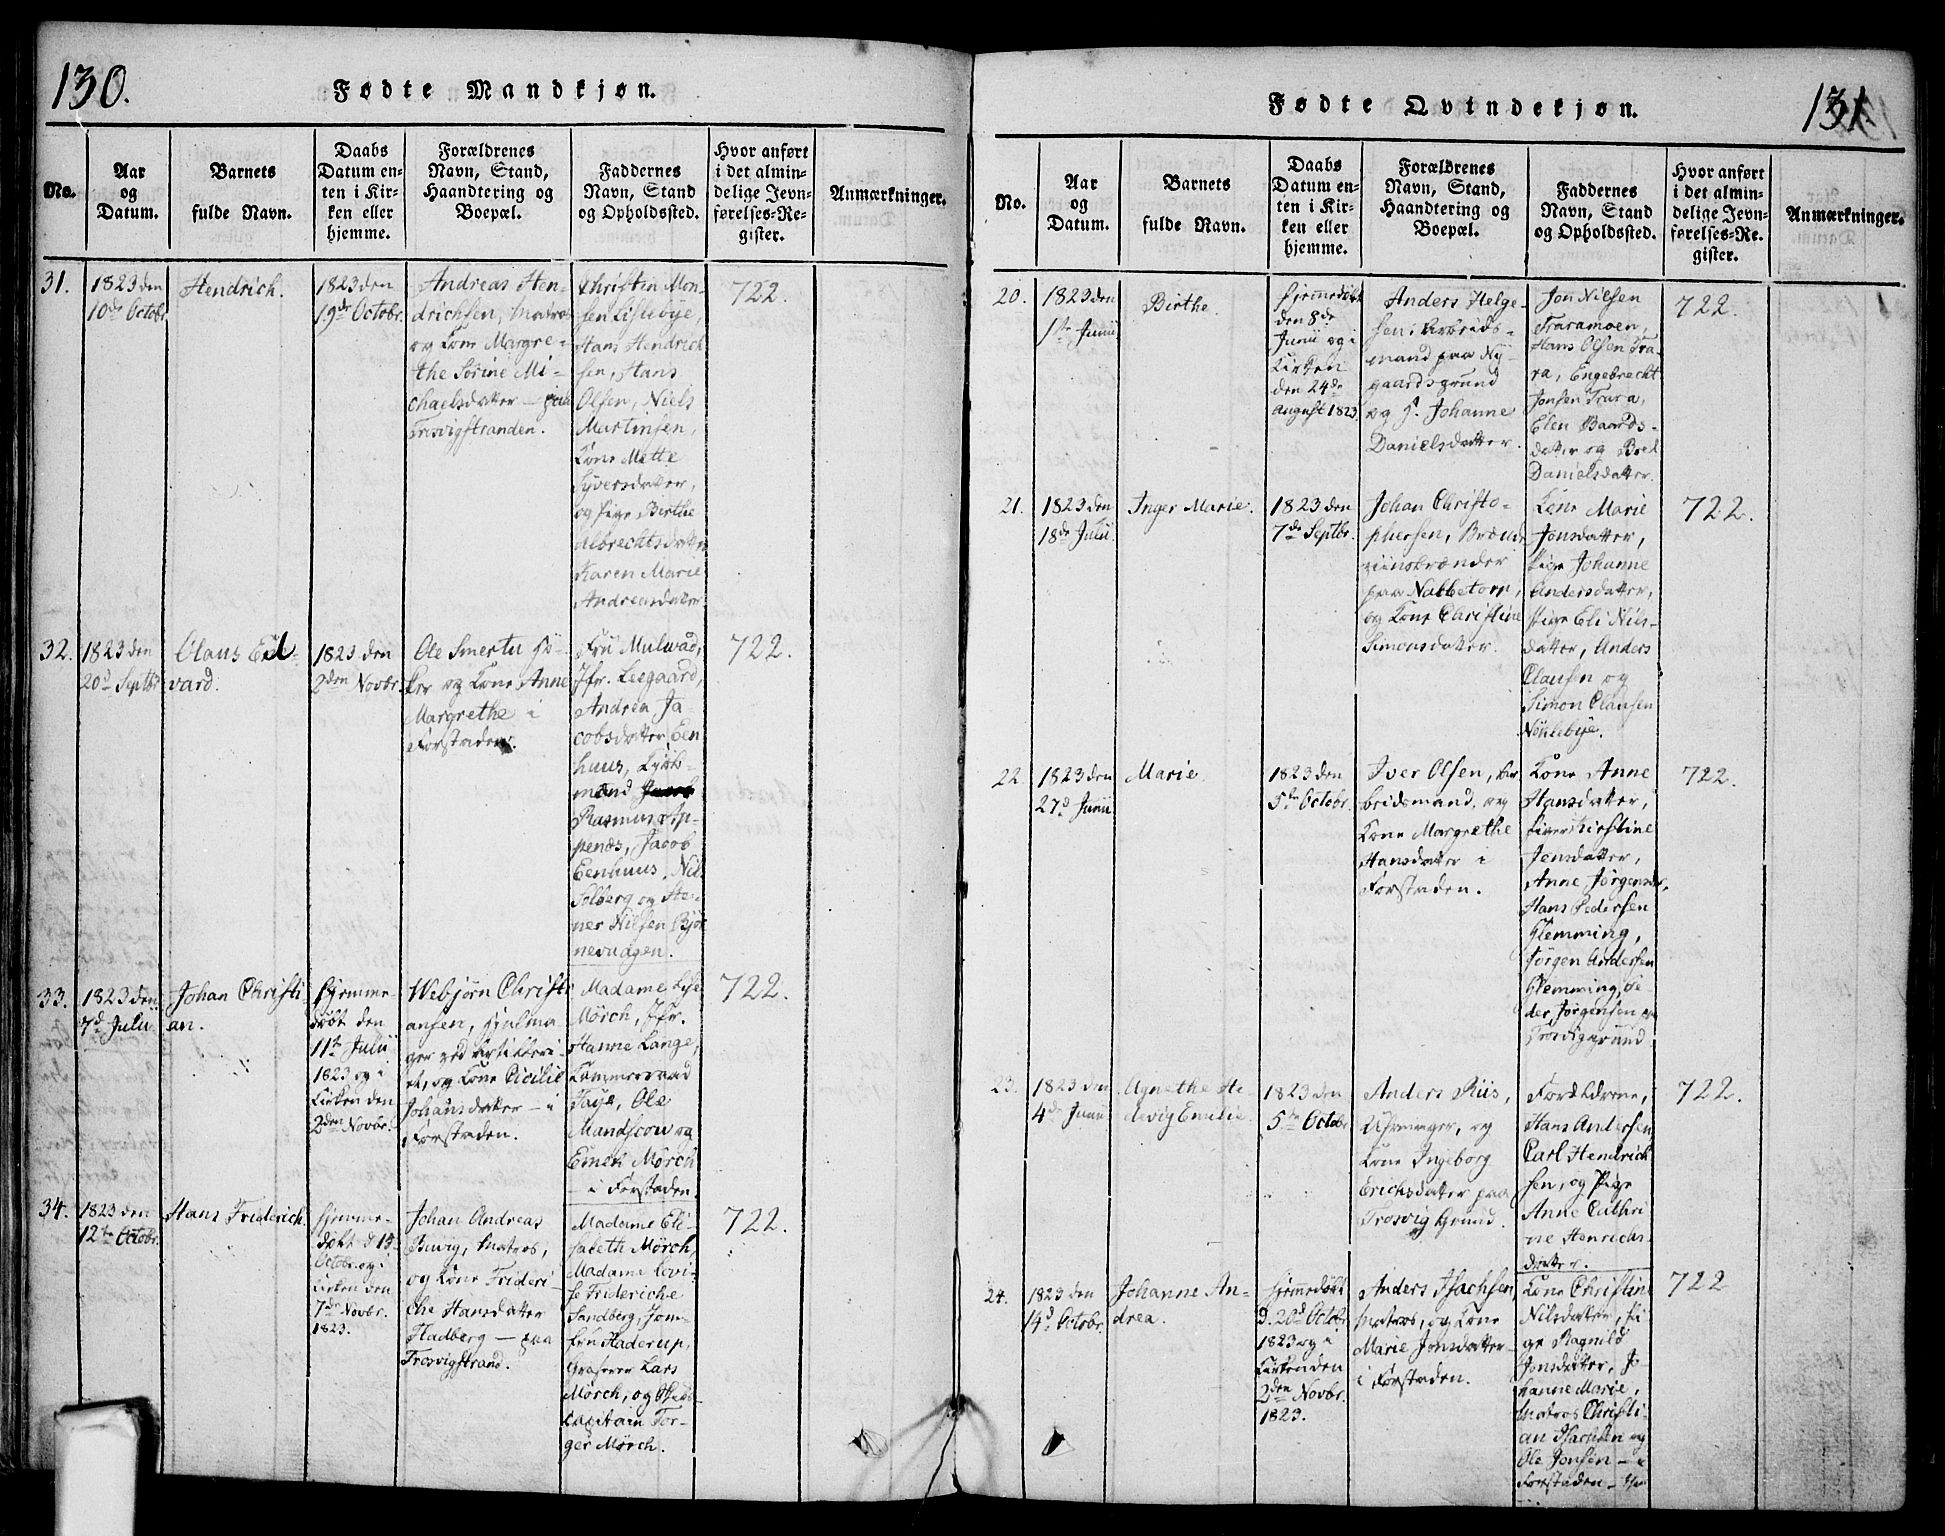 130.
Fødte Mandkjøn.
No.
Aar
og
Datum.
Barnets
fulde Navn.
Daabs
Datum en-
ten i Kir-
ken eller
hjemme.
Forældrenes
Navn, Stand,
Haandtering og
Boepæl.
Faddernes
Navn, Stand
og Opholdssted.
Hvor anført
i det almin-
delige Jevn-
førelses-Re-
gister.
Anmærkninger.
31.
1823 den
10de Octobr.
Hendrich.
1823 den
19de Octobr.
Andreas Hen-
drichsen, Matros
og Kone Margre-
the Sørine Mi-
chaelsdatter - paa
Trosvigstranden.
Christin Mon-
sen Lislebye,
Hans Hendrich
sen, Hans
Olsen, Niels
Martinsen,
Kone Mette
Syversdatter,
og Pige Birthe
Albrechtsdatter
Karen Marie
Andreasdatter
722.
32.
1823 den
20d Septbr
Olaus Ed-
vard.
1823 den
2den Novbr.
Ole Smertu
og Kone Anne
Margrethe i
Forstaden.
Fru Mulvad,
Jfr. Leegaard,
Andrea Ja-
cobsdatter Een
huus, Kjøb-
mænd
Rasmus Ap-
penæs, Jacob
Eenhuus, Nils
Solberg og Ste-
ner Nilsen Bjør
nevaagen.
722.
33.
1823 den
7d Julii
Johan Christi
an.
Hjemme-
døbt den
11te Julii
1823 og i
Kirken den
2den Novbr.
Webjørn Christi
ansen,
ger ved Artilleri-
et, og Kone Cicilie
Johansdatter - i
Forstaden.
Madame Lise
Mørch, Jfr.
Hanne Lange,
Kammerraad
Faye, Ole
Mandfrow og
Emen Mørch
- i Forstaden.
722.
34.
1823 den
12te Octobr.
Hans Friderich.
Hjemme-
døbt d 13
Octobr. og i
Kirken den
7de Novbr.
1823.
Johan Andreas
Juvig, Matros,
og Kone Frideri-
che Hansdatter
Hadberg - paa
Trosvigstrand.
Madame Eli-
sabeth Mørch,
Madame Lovi-
se Frideriche
Sandberg, Jom-
fru Haderup,
Graverer Lars
Mørch, og Skibs-
capitain Tor-
ger Mørch.
722.
131.
Fødte Qvindekjøn.
No.
Aar
og
Datum.
Barnets
fulde Navn.
Daabs
Datum en-
ten i Kir-
ken eller
hjemme.
Forældrenes
Navn, Stand,
Haandtering og
Boepæl.
Faddernes
Navn, Stand
og Opholdssted.
Hvor anført
i det almin-
delige Jevn-
førelses-Re-
gister.
Anmærkninger.
20.
1823 den
1ste Junii
Birthe.
Hjemmedøbt
den 8de
Junii og i
Kirken
den 24de
August 1823.
Anders Helge-
sen, Arbeids-
mand paa Ny-
gaardsgrund
og P. Johanne
Danielsdatter.
Jon Nilsen
Traramoen,
Hans Olsen Tra-
ra, Engebrecht
Jonsen Trara,
Elen Baards-
datter og Boel
Danielsdatter.
722.
21.
1823 den
18de Julii
Inger Marie.
1823 den
7de Septbr.
Johan Christo-
phersen, Brænde
viinsbrænder
paa Nabbetorp,
og Kone Christine
Simonsdatter.
Kone Marie
Jonsdatter,
Pige Johanne
Andersdatter,
Pige Eli Nils-
datter, Anders
Clausen og
Simon Clausen
Nøklebye.
722.
22
1823 den
27d Junii
Marie
1823 den
5de Octobr.
Iver Olsen, Ar
bridsmand, og
Kone Margrethe
Hansdatter i
Forstaden.
Kone Anne
Hansdatter,
Piger Kirstine
Jensdatter,
Anne Jørgensdr.
Hans Pedersen
Flemming,
Jørgen Andersen
Flemming, Pe
der Jørgensen
Trosviggrund
722.
23.
1823 den
4de Junii
Agnethe He-
devig Emilie.
1823 den
5te Octobr
Anders Riis,
Uhrmager, og
Kone Ingeborg
Erichsdatter paa
Trosvig Grund.
Forældrene,
Hans Andersen
Carl Hendrich
sen, og Pige
Anne Cathri
ne Henrichs
datter.
722.
24.
1823 den
14d Octobr.
Johanne An-
drea.
Hjemmedøbt
d. 20d Octobr
1823 og i
Kirken den
2den Novbr.
1823.
Anders Isachsen,
Matros, og Kone
Marie Jonsdatter
i Forstaden.
Kone Christine
Nilsdatter, Pi
ge Ragnild
Jonsdatter, Jo
hanne Marie,
Matros Christi-
an Isachsen og
Ole Jonsen - i
Forstaden
722